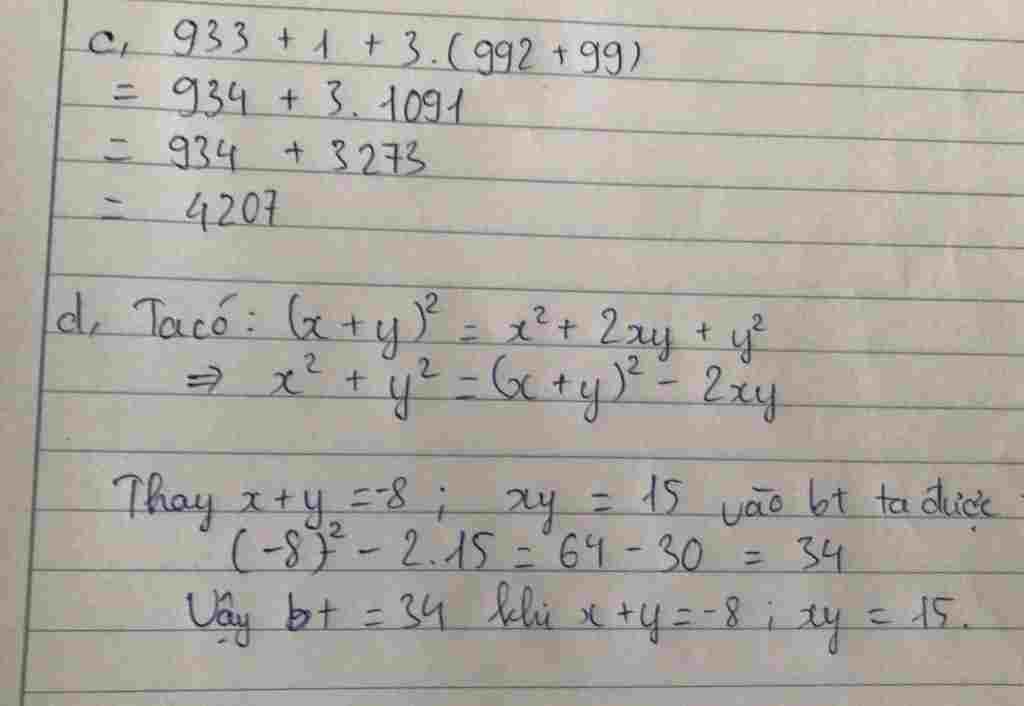 c, 933 + 1 + 3.(992 + 99)
= 934 + 3. 1091
= 934 + 3273
= 4207
d, Ta có: (x + y)² = x² + 2xy + y²
⇒ x² + y² = (x + y)² - 2xy
Thay x + y = -8 ; xy = 15 vào bt ta được
(-8)² - 2.15 = 64 - 30 = 34
Vậy bt = 34 khi x + y = -8 ; xy = 15.